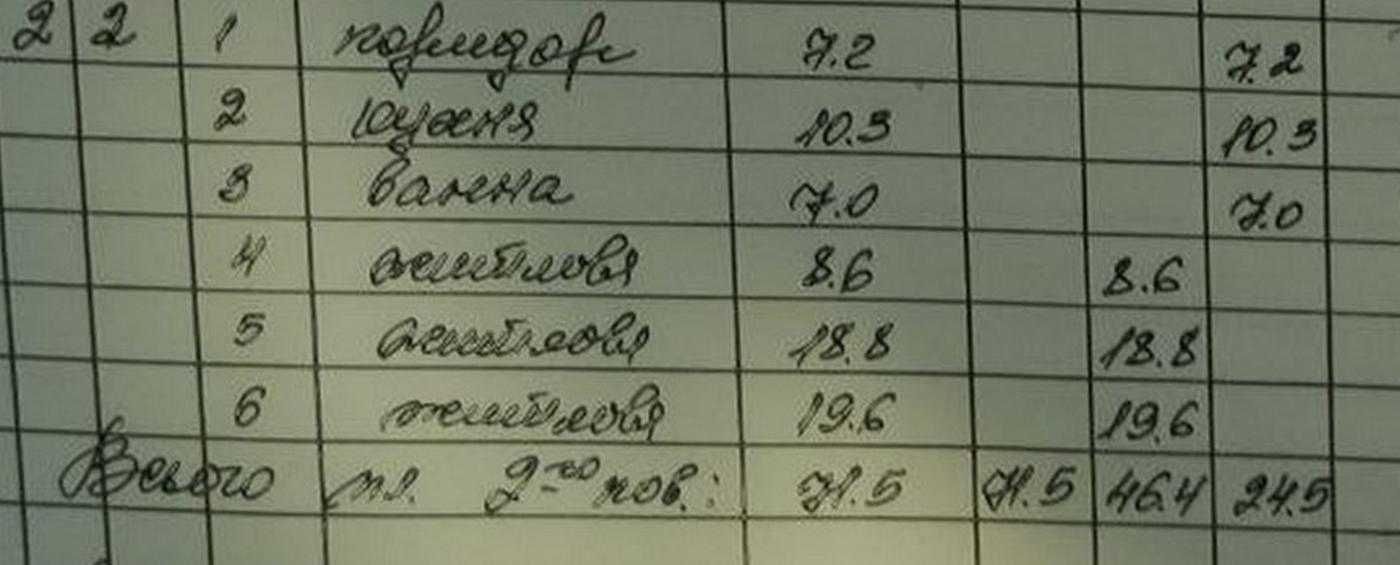 2 2 1 коридор 7.2 7.2
2 кухня 10.3 10.3
3 ванна 7.0 7.0
4 житлова 8.6 8.6
5 житлова 18.8 18.8
6 житлова 19.6 19.6
Всього пл. 2-го пов.: 71.5 71.5 46.4 24.5